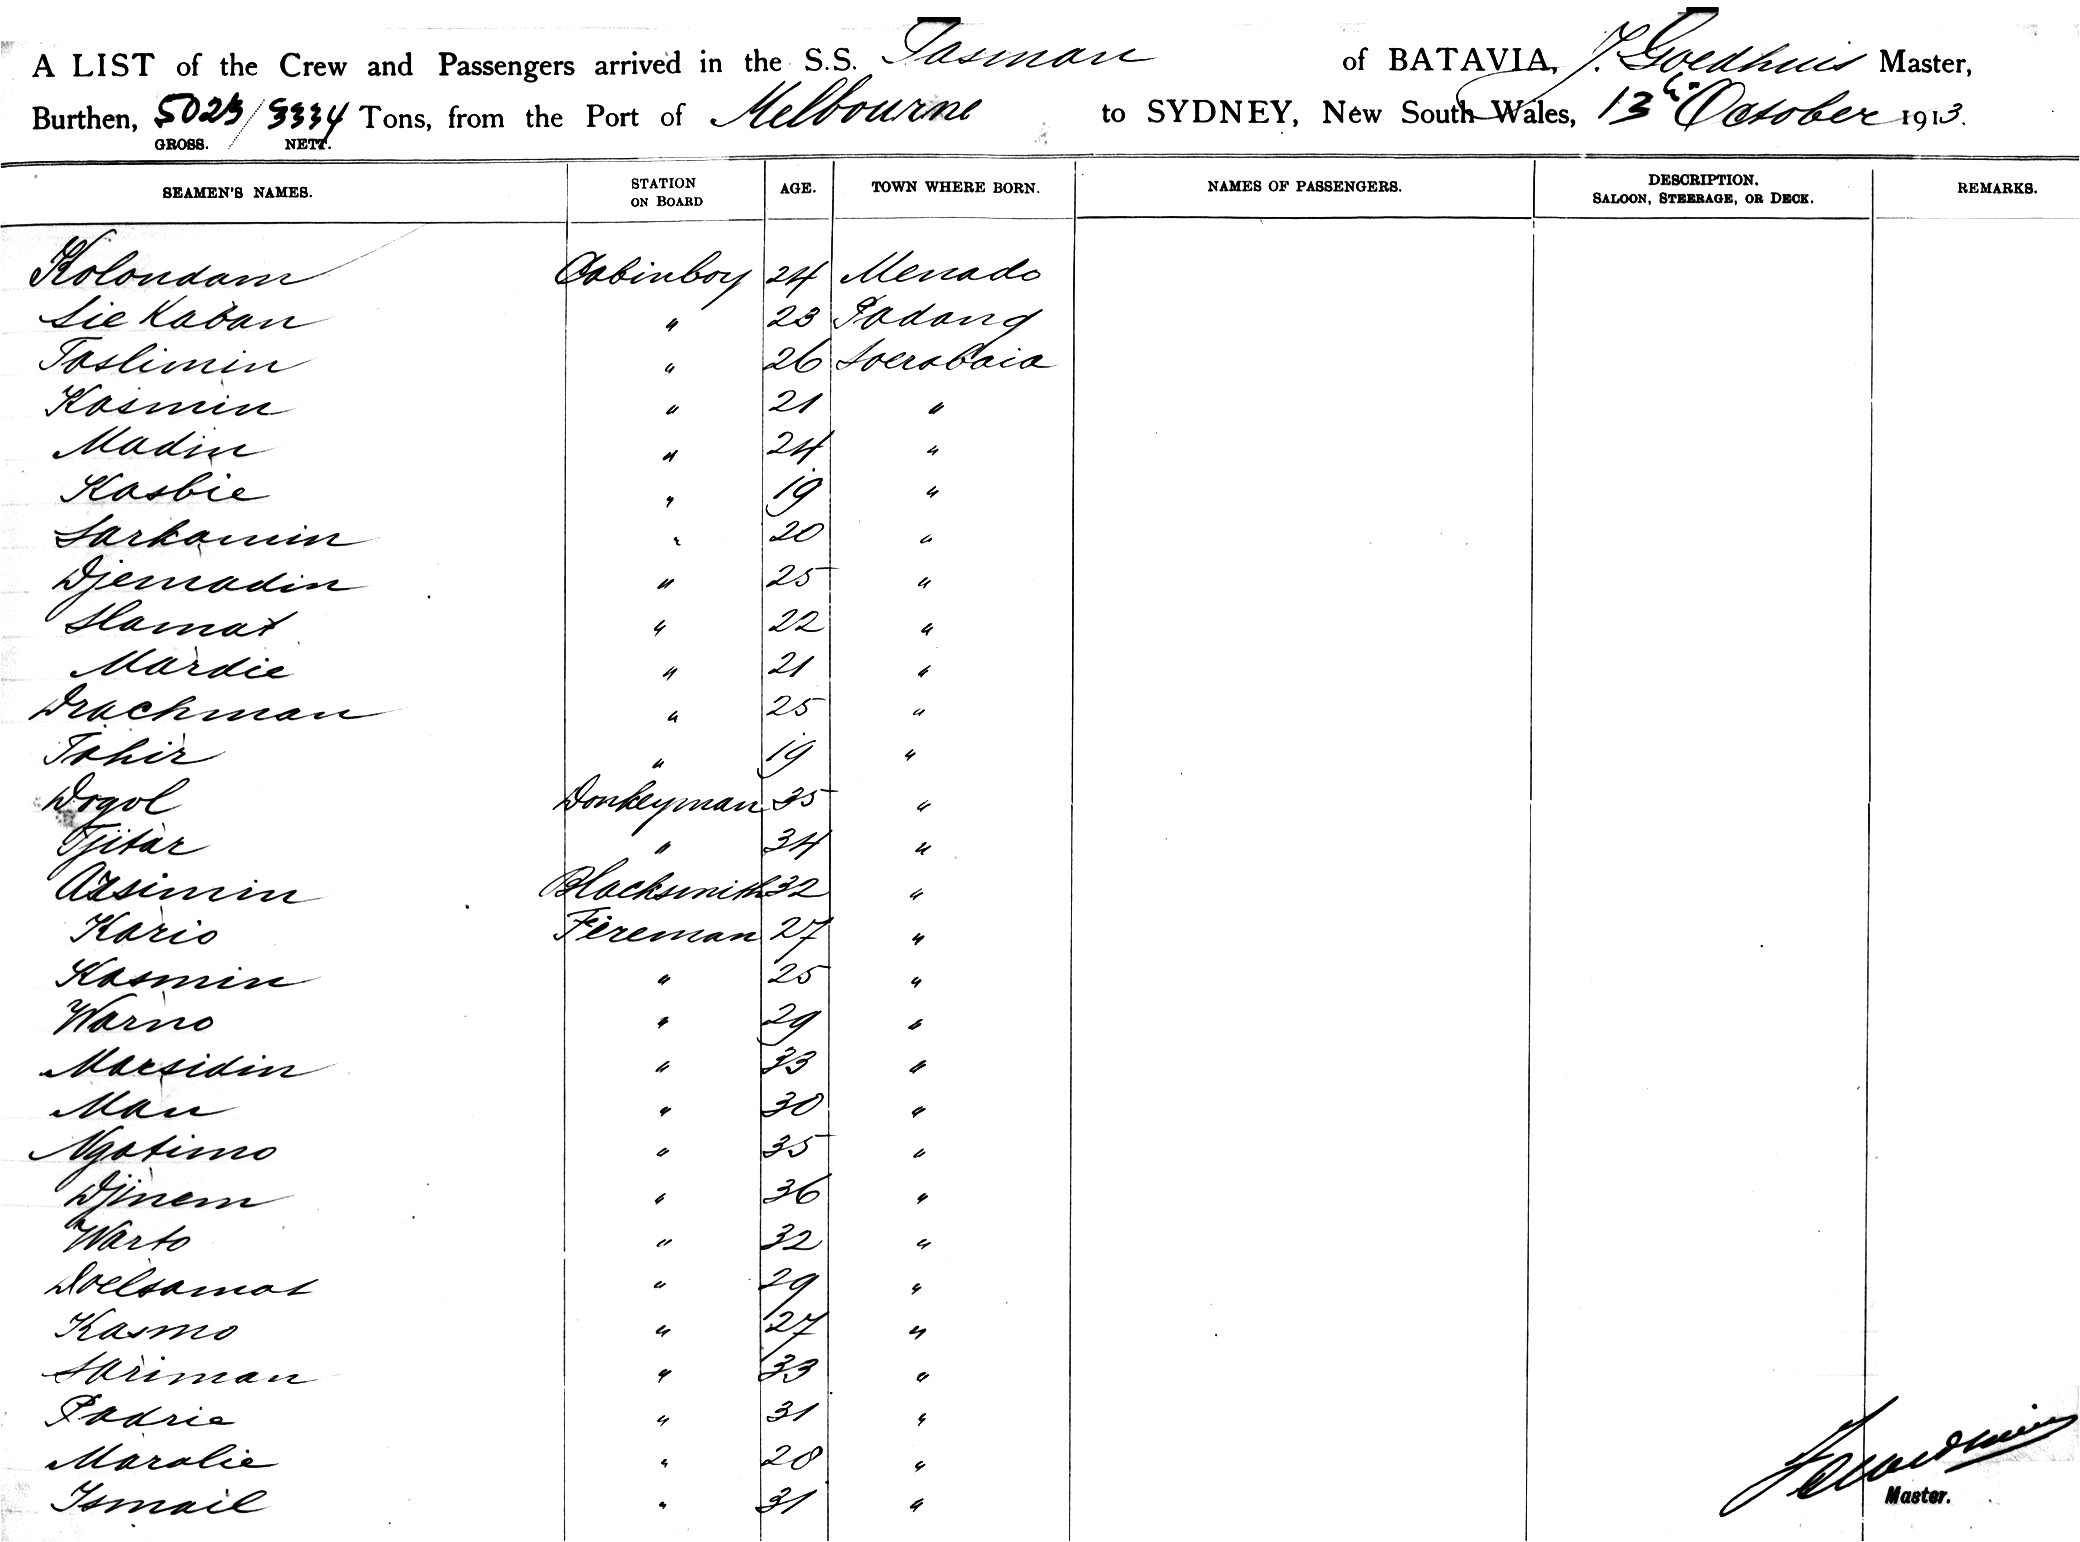 A LIST of the Crew and Passengers arrived in the S.S. Tasman of BATAVIA, J. Goedhuis Master,
Burthen, 5023/3334 Tons, from the Port of Melbourne to SYDNEY, New South Wales, 13th October 1913.
GROSS. NETT.
SEAMEN'S NAMES. STATION ON BOARD AGE. TOWN WHERE BORN. NAMES OF PASSENGERS. DESCRIPTION. SALOON, STEERAGE, OR DECK. REMARKS.
Kolondam Cabinboy 24 Menado
Sie Kaban " 23 Padang
Taslimin " 26 Soerabaia
Kasmin " 21 "
Madin " 24 "
Kasbie " 19 "
Sarkamin " 20 "
Djemadin " 25 "
Slamat " 22 "
Mardie " 21 "
Drachman " 25 "
Tahir " 19 "
Dogol Donkeyman 35 "
Tjitar " 34 "
Arsimin Blacksmith 32 "
Kario Fireman 27 "
Kasmin " 25 "
Warno " 29 "
Marsidin " 33 "
Man " 30 "
Ngatimo " 35 "
Djinem " 36 "
Warto " 32 "
Doelsamat " 29 "
Kasmo " 27 "
Sariman " 33 "
Padrie " 31 "
Maralie " 28 "
Ismail " 31 "
J Goedhuis
Master.